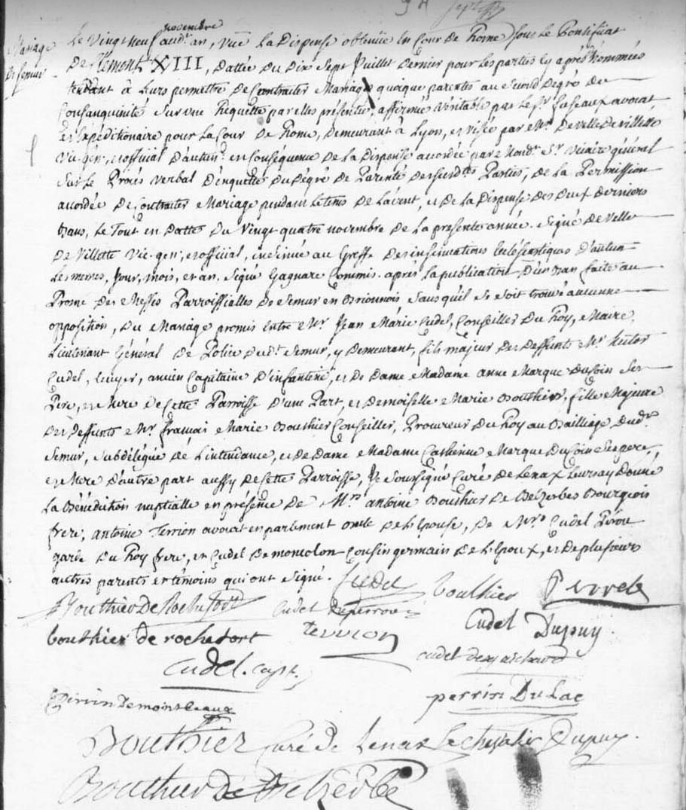 Mariage
De Semur
novembre
Le vingt neuf dudt. an, Vuë La Dispense obtenuë En Cour de Rome, sous le Pontificat
De Clement XIII, Dattée du Dix Sept Juillet Dernier pour les parties Cy après Nommées
tendant à Leurs permettre De Contracter Mariage quoique parentes au Second Degré de
Consanguinité Sur une Requette par elles présentée, affirmée Véritable par Le Sr. avocat
et Expéditionaire pour La Cour De Rome, Demeurant à Lyon, et visée par Mr. De Velle De Villette
Vic. gén. et official D'autun en Conséquence De La Dispense accordée par général
Sur Le Procès Verbal D'enquette Du Dégré De Parenté Desdittes Parties, De La Permission
accordée De Contracter Mariage pendant Le tems De L'avent, et De La Dispense Des Deux Derniers
bans, Le Tout en Dattes Du Vingt quatre novembre De La présente année. Signé De Velle
De Villette Vic. gen. et official, insinué au Greffe Des insinuations Ecclésiastiques D'autun
Les mêmes, Jour, mois, et an. Signé Gagnare Commis. après La publication D'un ban faite au
Prone Des Messes Parroissialles De Semur en Brionnois Sans qu'il Se Soit trouvé aucune
opposition, Du Mariage promis Entre Mr. Jean Marie Cudel, Conseiller Du Roy, Maire,
Lieutenant Général De Police Dudt. Semur, y Demeurant, fils majeur De Deffunts Mr. Hector
Cudel, Ecuyer, ancien Capitaine D'infanterie, et De Dame Madame anne Marque Dufoin Ses
Père, et Mere De Cette Parroisse D'une Part, et Demoiselle Marie Bouthier, fille Majeure
De Deffunts Mr. François Marie Bouthier Conseiller, Procureur Du Roy au Bailliage Dudt.
Semur, Subdélégué De L'intendance, et De Dame Madame Catherine Marque Dufoin Ses pere,
et Mere D'autre part aussy De Cette Parroisse, Je Soussigné Curé De Lenax Leur ay Donné
La Bénédiction nuptialle en présence De Mrs. antoine Bouthier De Bourgeois
frere, antoine Terrion avocat en parlement oncle De L'Epouse, De Mrs. Cudel
garde Du Roy frere, et Cudel De montcolon Cousin germain De L'Epoux, et De plusieurs
autres parents et temoins qui ont Signé. Cudel bouthier Perret
Bouthier De Rochefort Cudel Duperroux
bouthier de rochefort terrion Cudel Dupuy
Cudel. capt. cudel
perrin Dulac
Bouthier Curé de Lenax Le chevalier Dupuy.
Bouthier De